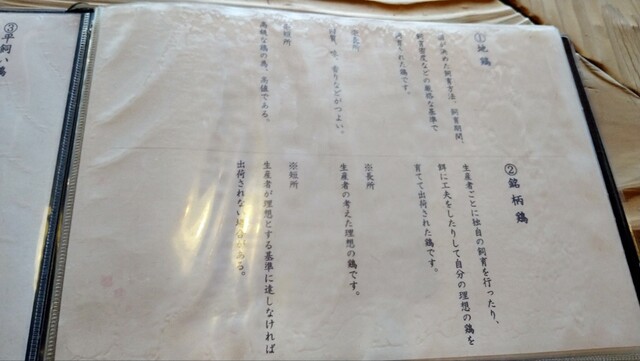 ①地鶏
国が決めた飼育方法、飼育期間、
飼育密度などの厳格な基準で
された鶏です。
※長所
味、香りなどがつよい。
短所
高級な鶏の為、高値である。
②銘柄鶏
生産者ごとに独自の飼育を行ったり、
餌に工夫をしたりして自分の理想の鶏を
育てて出荷された鶏です。
※長所
生産者の考えた理想の鶏です。
※短所
生産者が理想とする基準に達しなければ
出荷されない場合がある。
③平飼い鶏